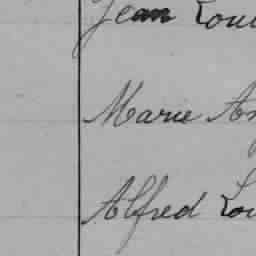 Jean Loui
Marie An
Alfred Lou